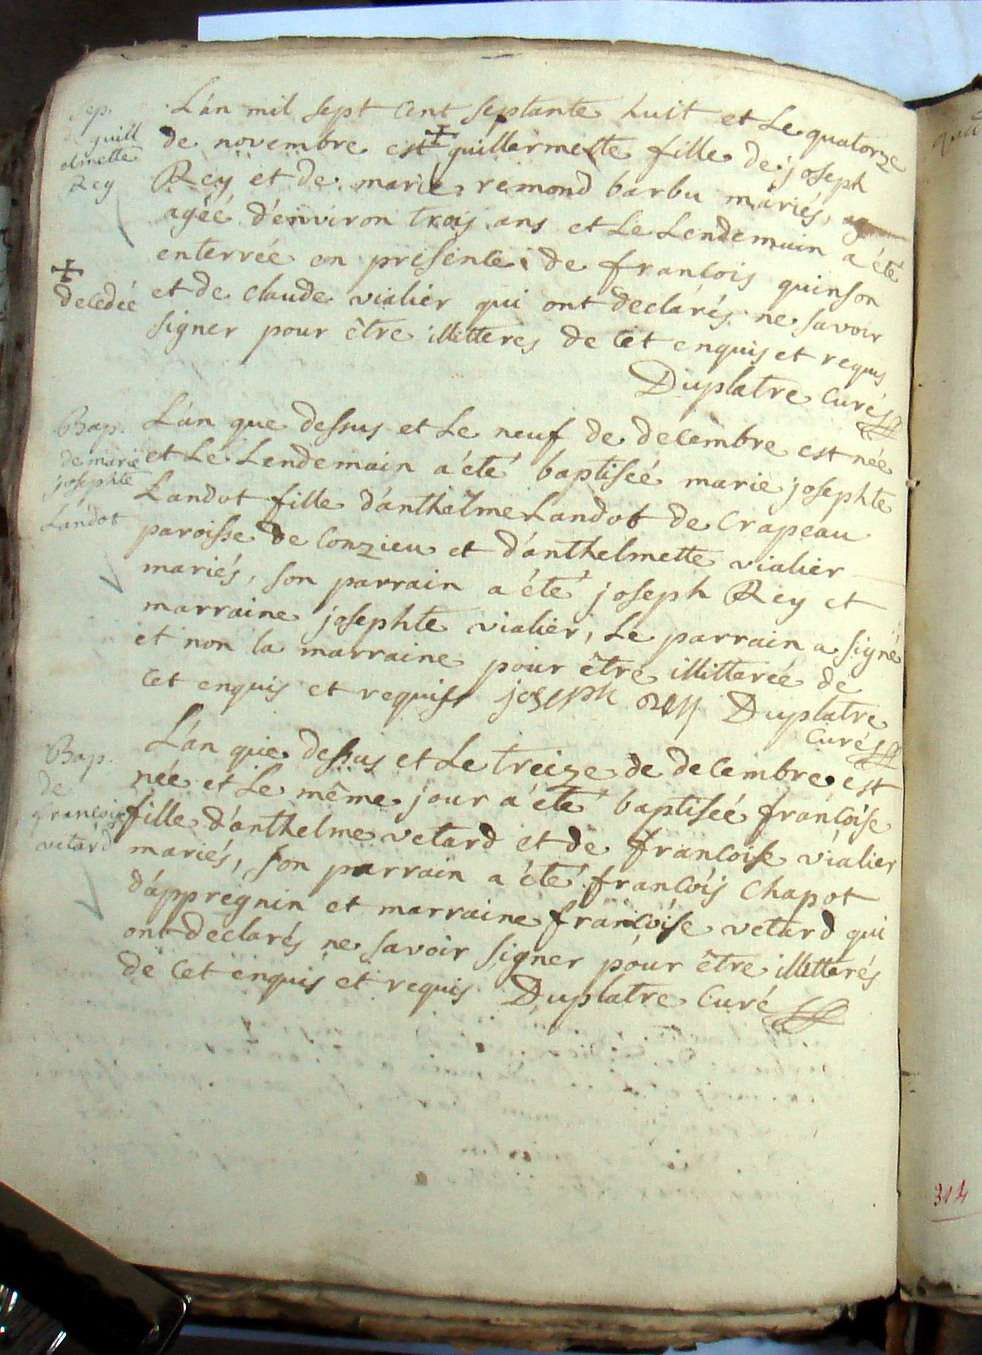 Sep.
guill
elmette
Rey
L'an mil sept cent septante huit et le quatorze
de novembre est ✝ guillermette fille de joseph
Rey et de marie remond barbu mariés,
agéé d'environ trois ans et le Lendemain a été
enterrée en présence de francois quinson
✝
decedée
et de claude vialier qui ont declarés ne savoir
signer pour être illitteres de cet enquis et requis
Duplatre Curé
Bap.
de marie
josephte
Landot
L'an que dessus et le neuf de decembre est née
et Le Lendemain a été baptiséé marie josephte
Landot fille d'anthelme Landot de Crapeau
paroisse de Conzieu et d'anthelmette vialier
mariés, son parrain a été joseph Rey et
marraine josephte vialier, Le parrain a signé
et non la marraine pour être illitteréé de
cet enquis et requis joseph rey Duplatre
Curé
Bap.
de
francoise
vetard
L'an que dessus et Le treize de decembre est
née et Le même jour a été baptiséé francoise
fille d'anthelme vetard et de francoise vialier
mariés, son parrain a été francois Chapot
d'appregnin et marraine francoise vetard qui
ont declarés ne savoir signer pour être illitterés
de cet enquis et requis Duplatre Curé
314